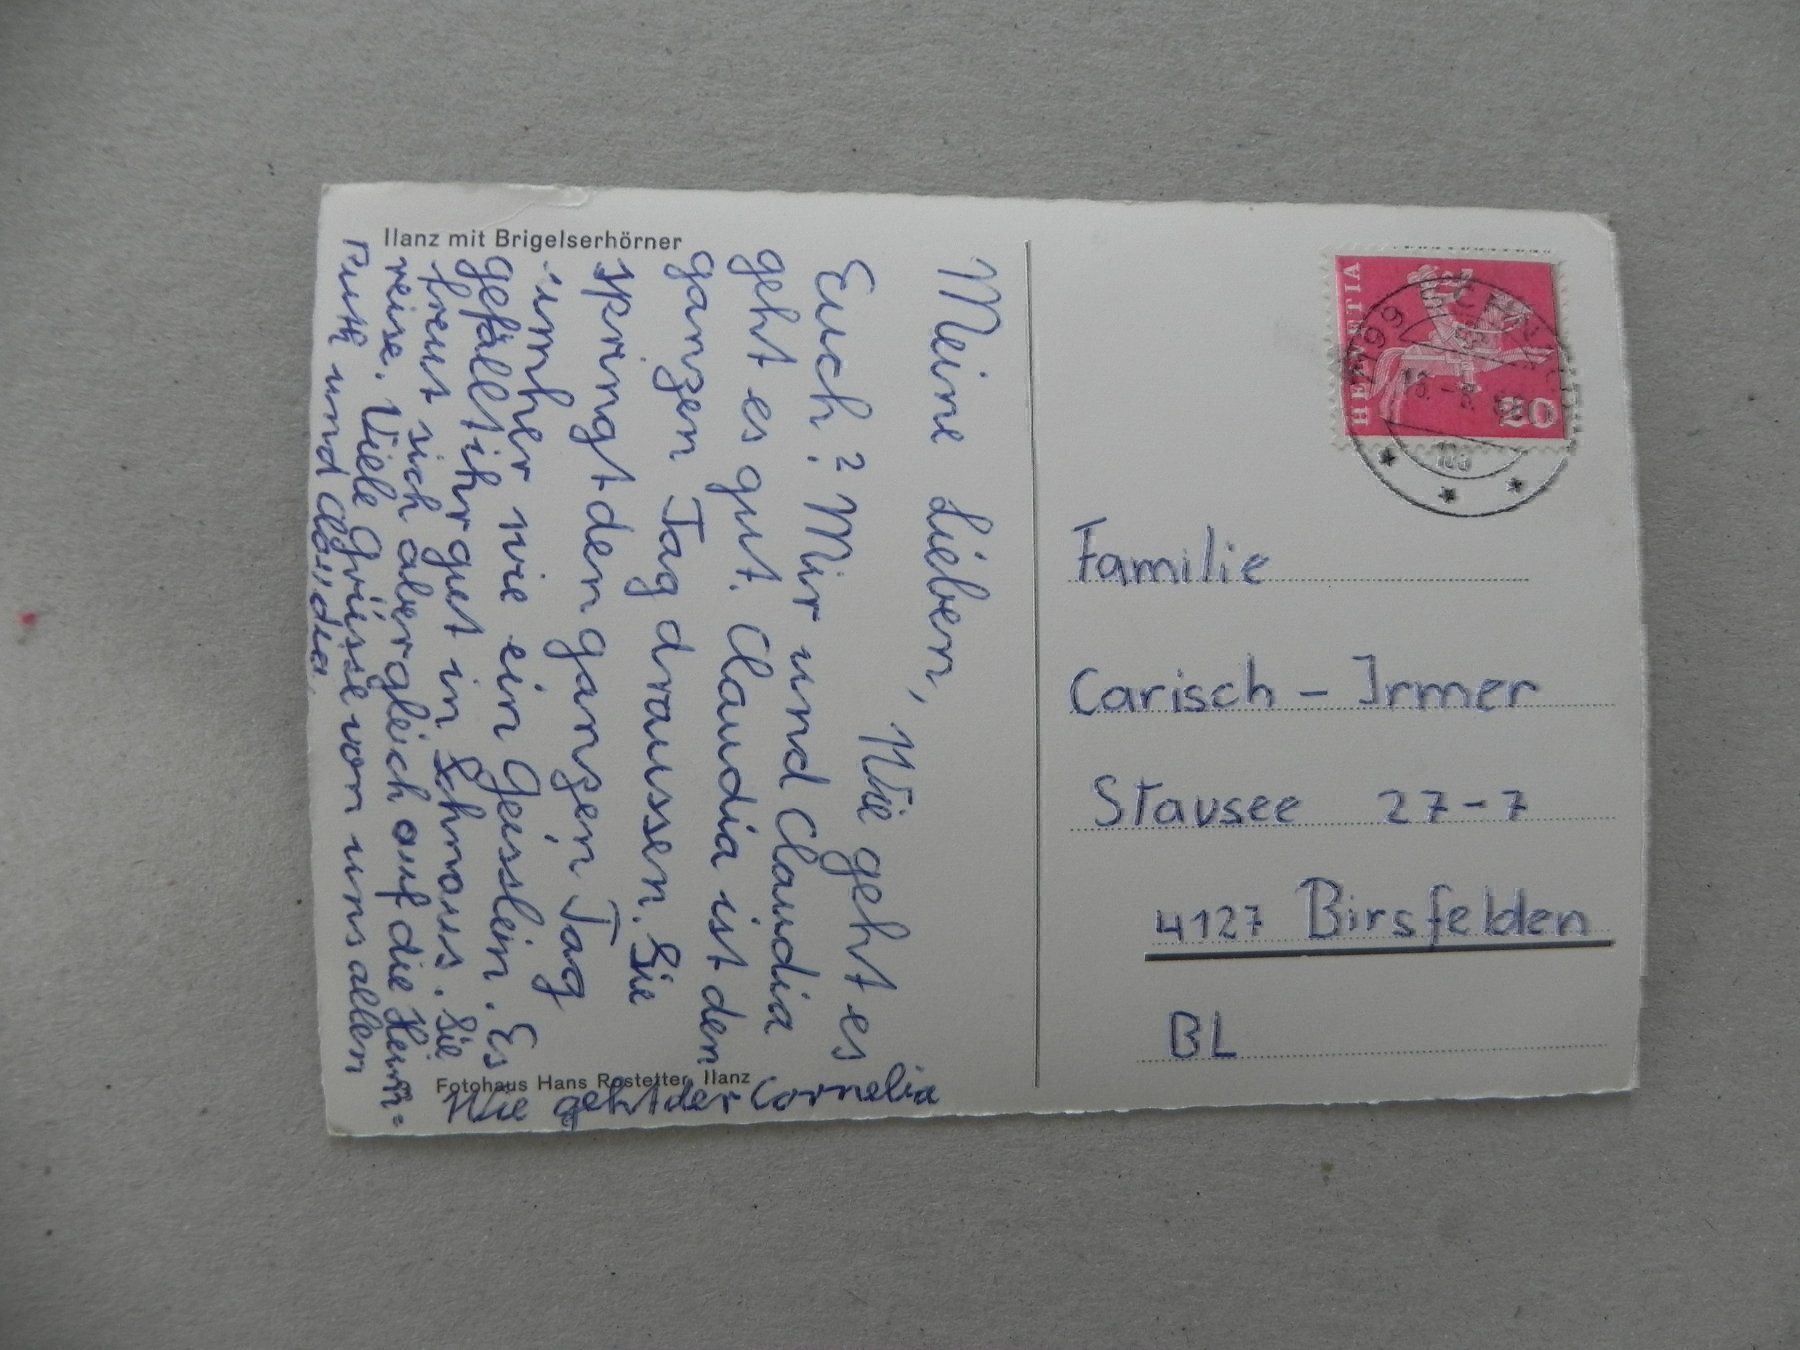 Ilanz mit Brigelserhörner
Meine Lieben,
Wie geht es
Euch? Mir und Claudia
geht es gut. Claudia ist den
ganzen Tag draussen. Sie
springt den gansen Tag
umher wie ein Geisslein. Es
gefällt ihr gut in Schnaus. Sie
freut sich aber gleich auf die Heim=
reise. Viele Grüsse von uns allen
Ruth und Claudia
Wie geht der Cornelia
Fotohaus Hans Rostetter, Ilanz
HELVETIA
20
Familie
Carisch - Irmer
Stausee 27-7
4127 Birsfelden
BL